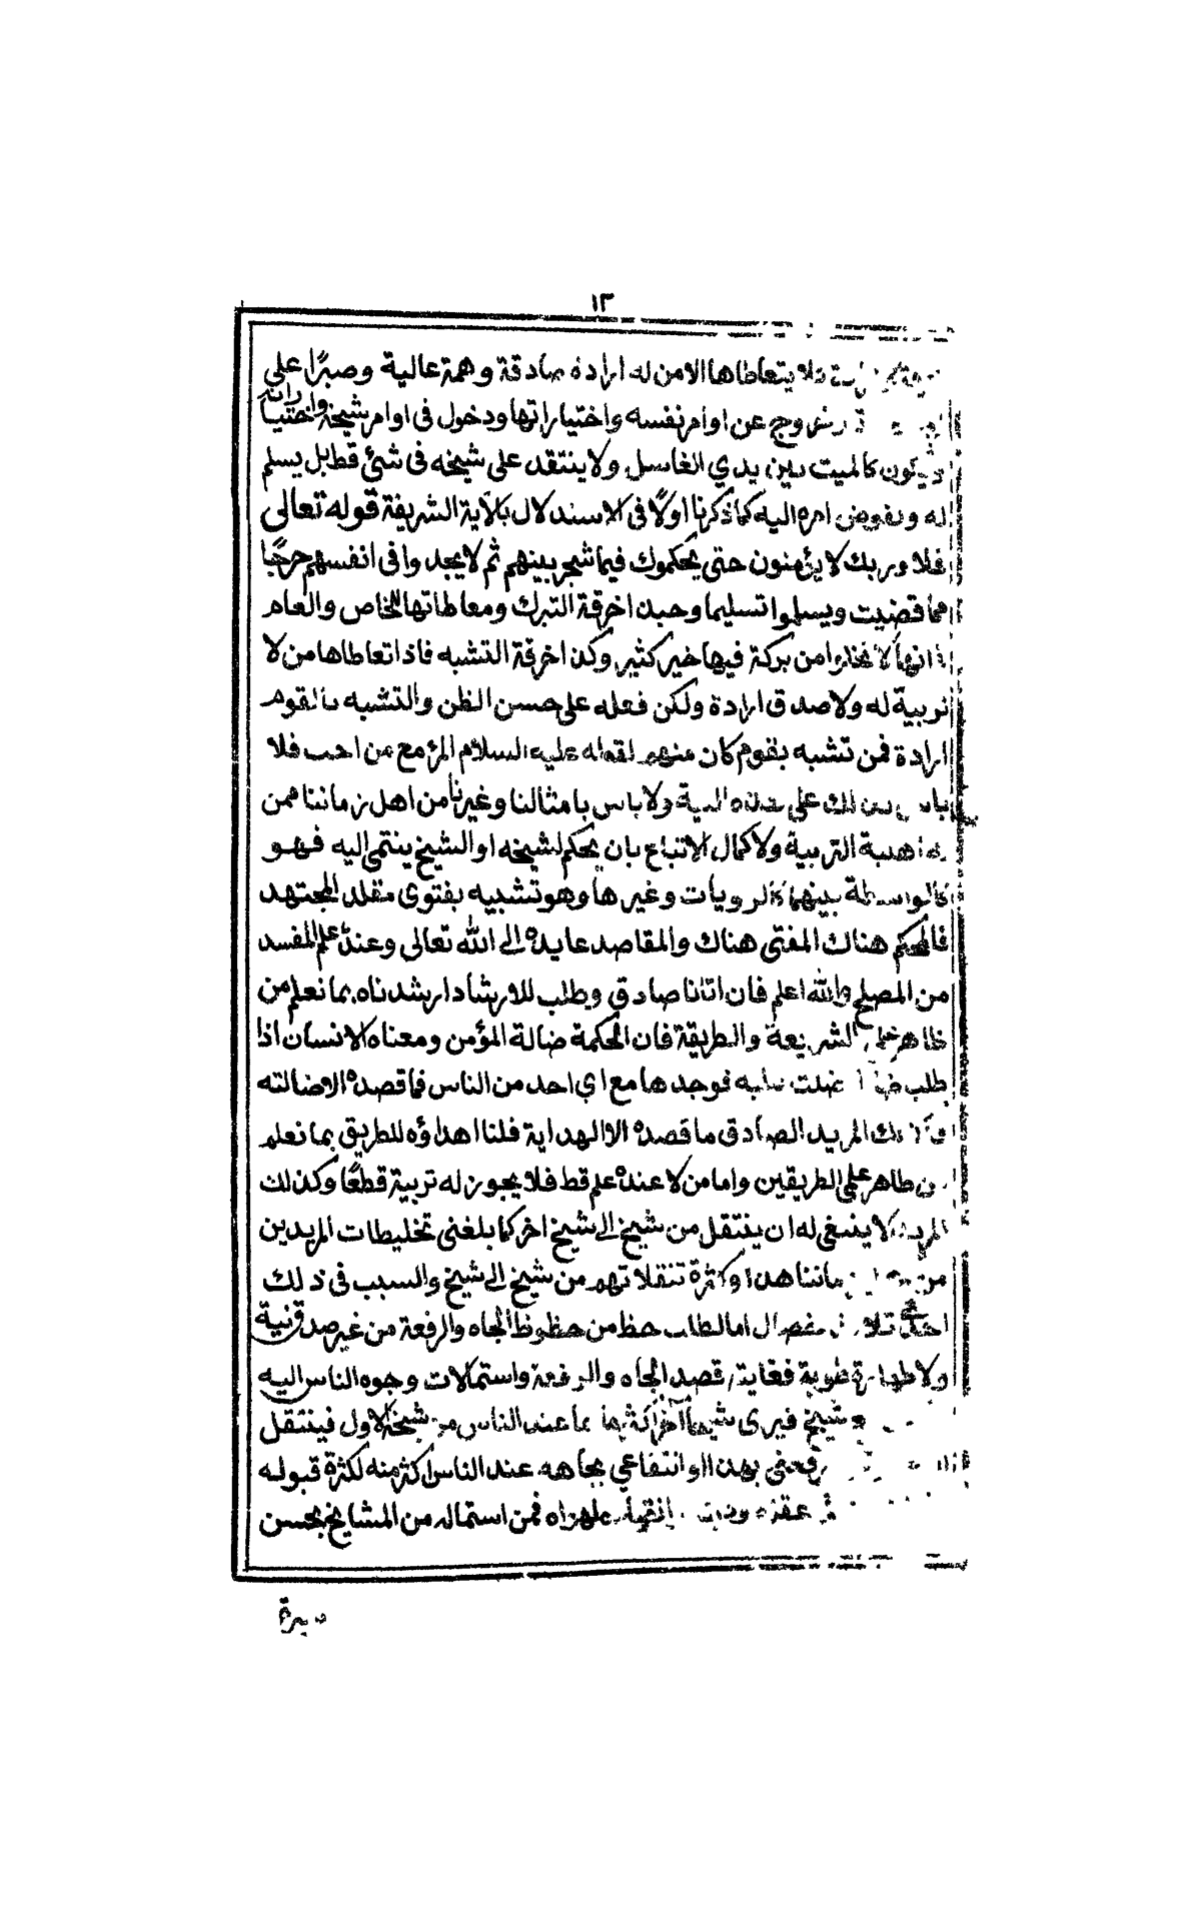 ١٣
فلا يتعاطاها الا من له ارادة صادقة وهمة عالية وصبرًا على
وخروج عن اوامر نفسه واختياراتها ودخول فى اوامر شيخه واختياراته
ويكون كالميت بين يدي الغاسل ولا ينتقد على شيخه فى شئ قط بل يسلم
له ويفوض امره اليه كما ذكرنا اولًا فى الاستدلال بالآية الشريفة قوله تعالى
فلا وربك لا يؤمنون حتى يحكموك فيما شجر بينهم ثم لا يجدوا فى انفسهم حرجًا
مما قضيت ويسلموا تسليما وحبذا خرقة التبرك ومعاطاتها للخاص والعام
انها لا تخلوا من بركة فيها خير كثير وكذا خرقة التشبه فاذا تعاطاها من لا
تربية له ولا صدق ارادة ولكن فعله على حسن الظن والتشبه بالقوم
ارادة فمن تشبه بقوم كان منهم لقوله عليه السلام المرؤ مع من احب فلا
باس بذلك على هذه النية ولا باس بامثالنا وغيرنا من اهل زماننا ممن
له اهبة التربية ولا كمال الاتباع بان يحكم لشيخه او الشيخ ينتمى اليه فهو
كالواسطة بينهما كالرويات وغيرها وهو تشبيه بفتوى مقلد المجتهد
فالمحكم هناك المفتى هناك والمقاصد عايده الى الله تعالى وعنده علم المفسد
من المصلح والله اعلم فان اتانا صادق وطلب للارشاد ارشدناه بما نعلم من
ظاهر علم الشريعة والطريقة فان الحكمة ضالة المؤمن ومعناه الانسان اذا
طلب ضلت عليه فوجدها مع اي احد من الناس فما قصده الا ضالته
وكذلك المريد الصادق ما قصده الا الهداية فلنا اهداؤه للطريق بما نعلم
من ظاهر علمى الطريقين واما من لا عنده علم قط فلا يجوز له تربية قطعًا وكذلك
المريد لا ينبغى له ان ينتقل من شيخ الى شيخ اخر كما بلغنى تخليطات المريدين
من زماننا هذا وكثرة تنقلاتهم من شيخ الى شيخ والسبب فى ذلك
احدى ثلاث خصال اما لطلب حظ من حظوظ الجاه والرفعة من غير صدق نية
ولا طهارة طوية فغايته قصد الجاه والرفعة واستمالات وجوه الناس اليه
شيخ فيرى شيخًا آخر اكثرها بما عند الناس من شيخه الاول فينتقل
رفعنى بهذا او انتفاعي بجاهه عند الناس اكثر منه لكثرة قبوله
عقده فمن استماله من المشايخ بحسن
سيرة